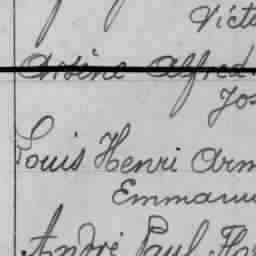 Victo
Arsène Alfred
Jos
Louis Henri Arm
Emmanu
André Paul